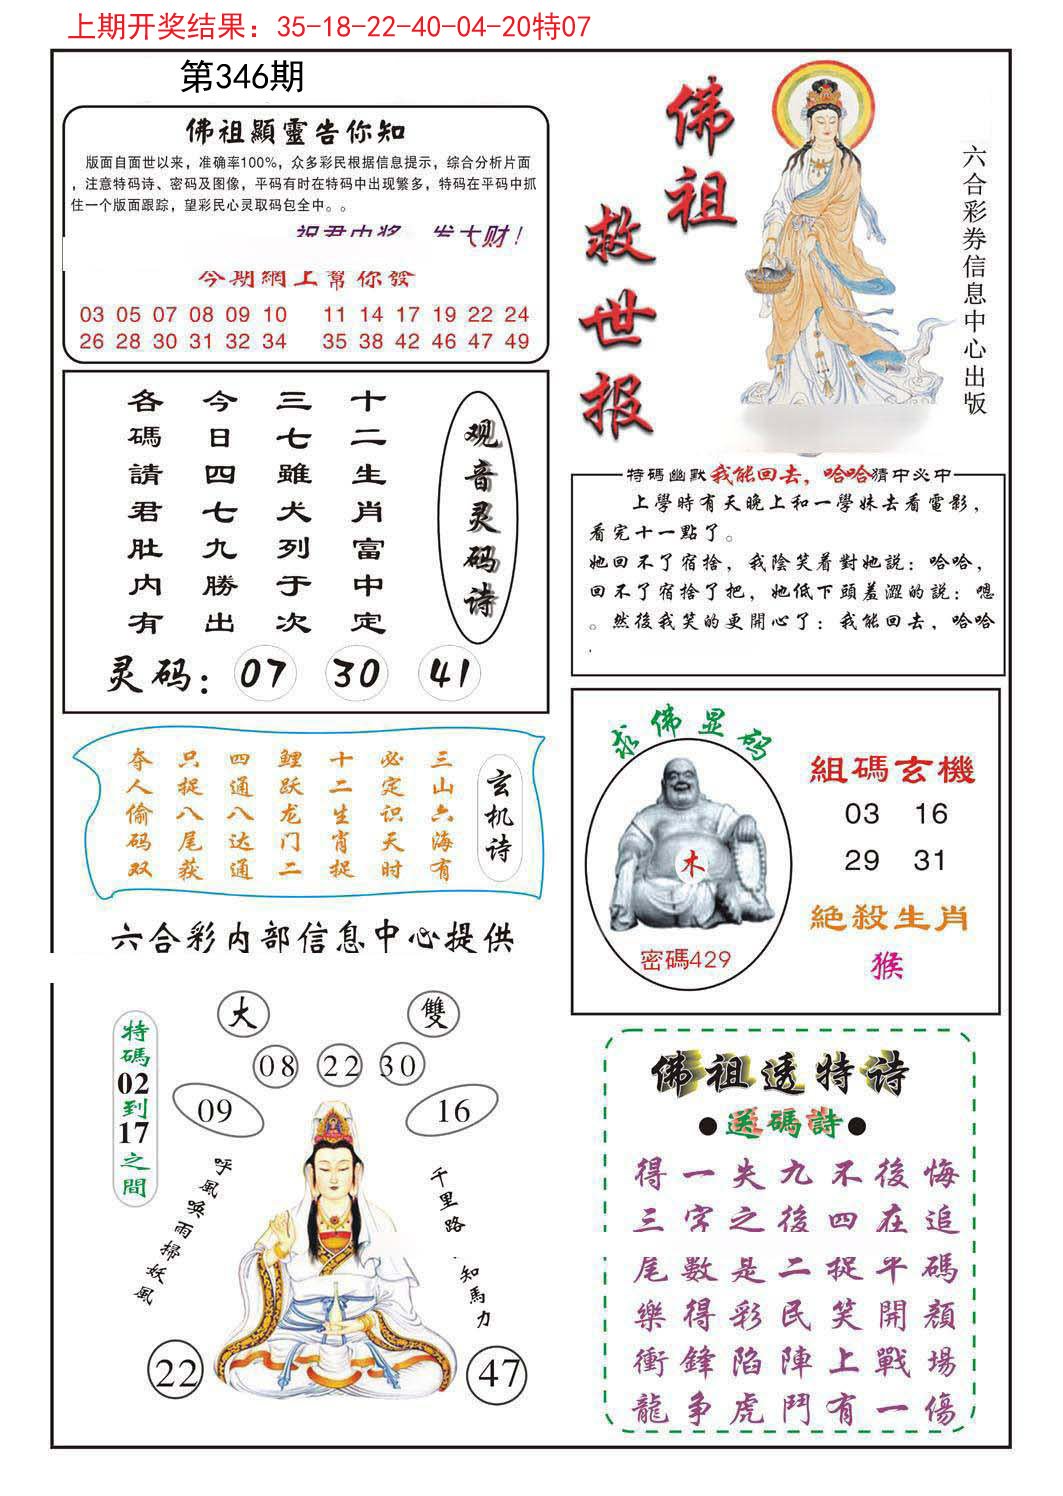 上期开奖结果：35-18-22-40-04-20特07
第346期
佛祖顯靈告你知
版面自面世以来，准确率100%，众多彩民根据信息提示，综合分析片面
，注意特码诗、密码及图像，平码有时在特码中出现繁多，特码在平码中抓
住一个版面跟踪，望彩民心灵取码包全中。。
祝君中奖 发大财！
今期網上幫你發
03 05 07 08 09 10 11 14 17 19 22 24
26 28 30 31 32 34 35 38 42 46 47 49
佛祖
救世报
六合彩券信息中心出版
观音灵码诗
十二生肖富中定
三七雖犬列于次
今日四七九勝出
各碼請君肚内有
灵码：07 30 41
特碼幽默我能回去，哈哈猜中必中
上學時有天晚上和一學妹去看電影，
看完十一點了。
她回不了宿捨，我陰笑着對她説：哈哈，
回不了宿捨了把，她低下頭羞澀的説：嗯
。然後我笑的更開心了：我能回去，哈哈
玄机诗
三山六海有
必定识天时
十二生肖捉
鲤跃龙门二
四通八达通
只捉八尾获
夺人偷码双
六合彩内部信息中心提供
求佛显码
木
密碼429
組碼玄機
03 16
29 31
絶殺生肖
猴
特碼02到17之間
大 雙
08 22 30
09 16
呼風喚雨掃妖風
千里路 知馬力
22 47
佛祖透特诗
●送碼詩●
得一失九不後悔
三字之後四在追
尾數是二捉平碼
樂得彩民笑開顔
衝鋒陷陣上戰場
龍争虎鬥有一傷